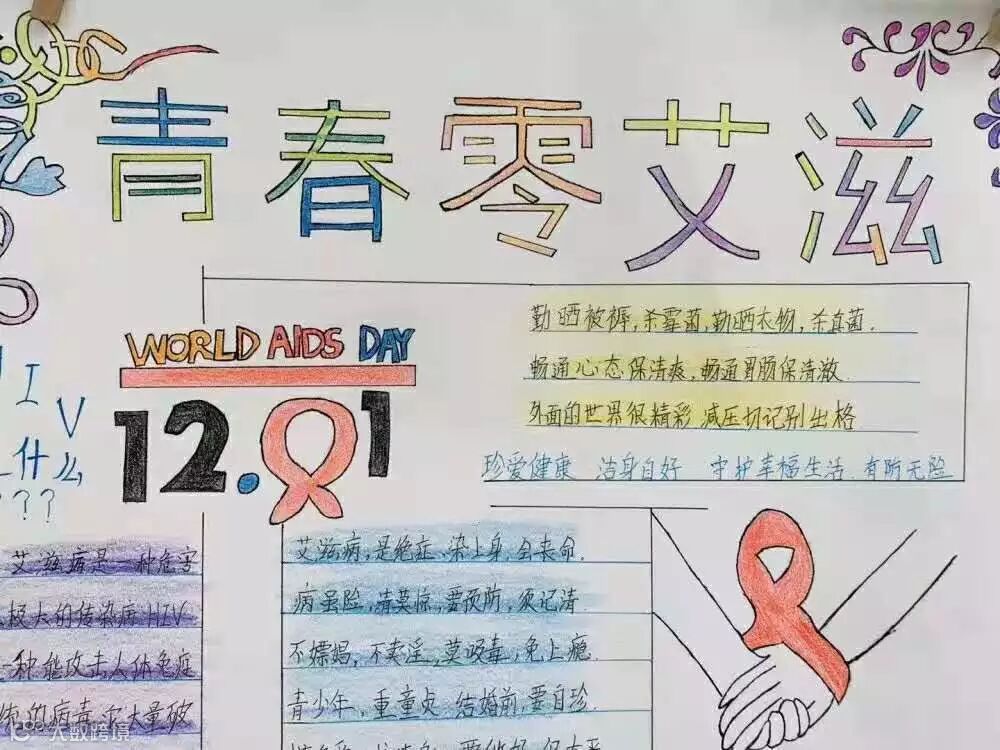 青春零艾滋
WORLD AIDS DAY
12.01
勤晒被褥,杀霉菌,勤晒衣物,杀真菌.
畅通心态保清爽,畅通胃肠保清澈.
外面的世界很精彩 减压切记别出格
珍爱健康 洁身自好 守护幸福生活 有防无险
I V
什么
???
艾滋病是一种危害
极大的传染病HIV
一种能攻击人体免疫
的病毒 大量破
艾滋病,是绝症,染上身,全丧命.
病虽险,请莫惊,要预防,须记清.
不嫖娼,不卖淫,莫吸毒,免上瘾.
青少年,重童贞 结婚前,要自珍.
大数跨境